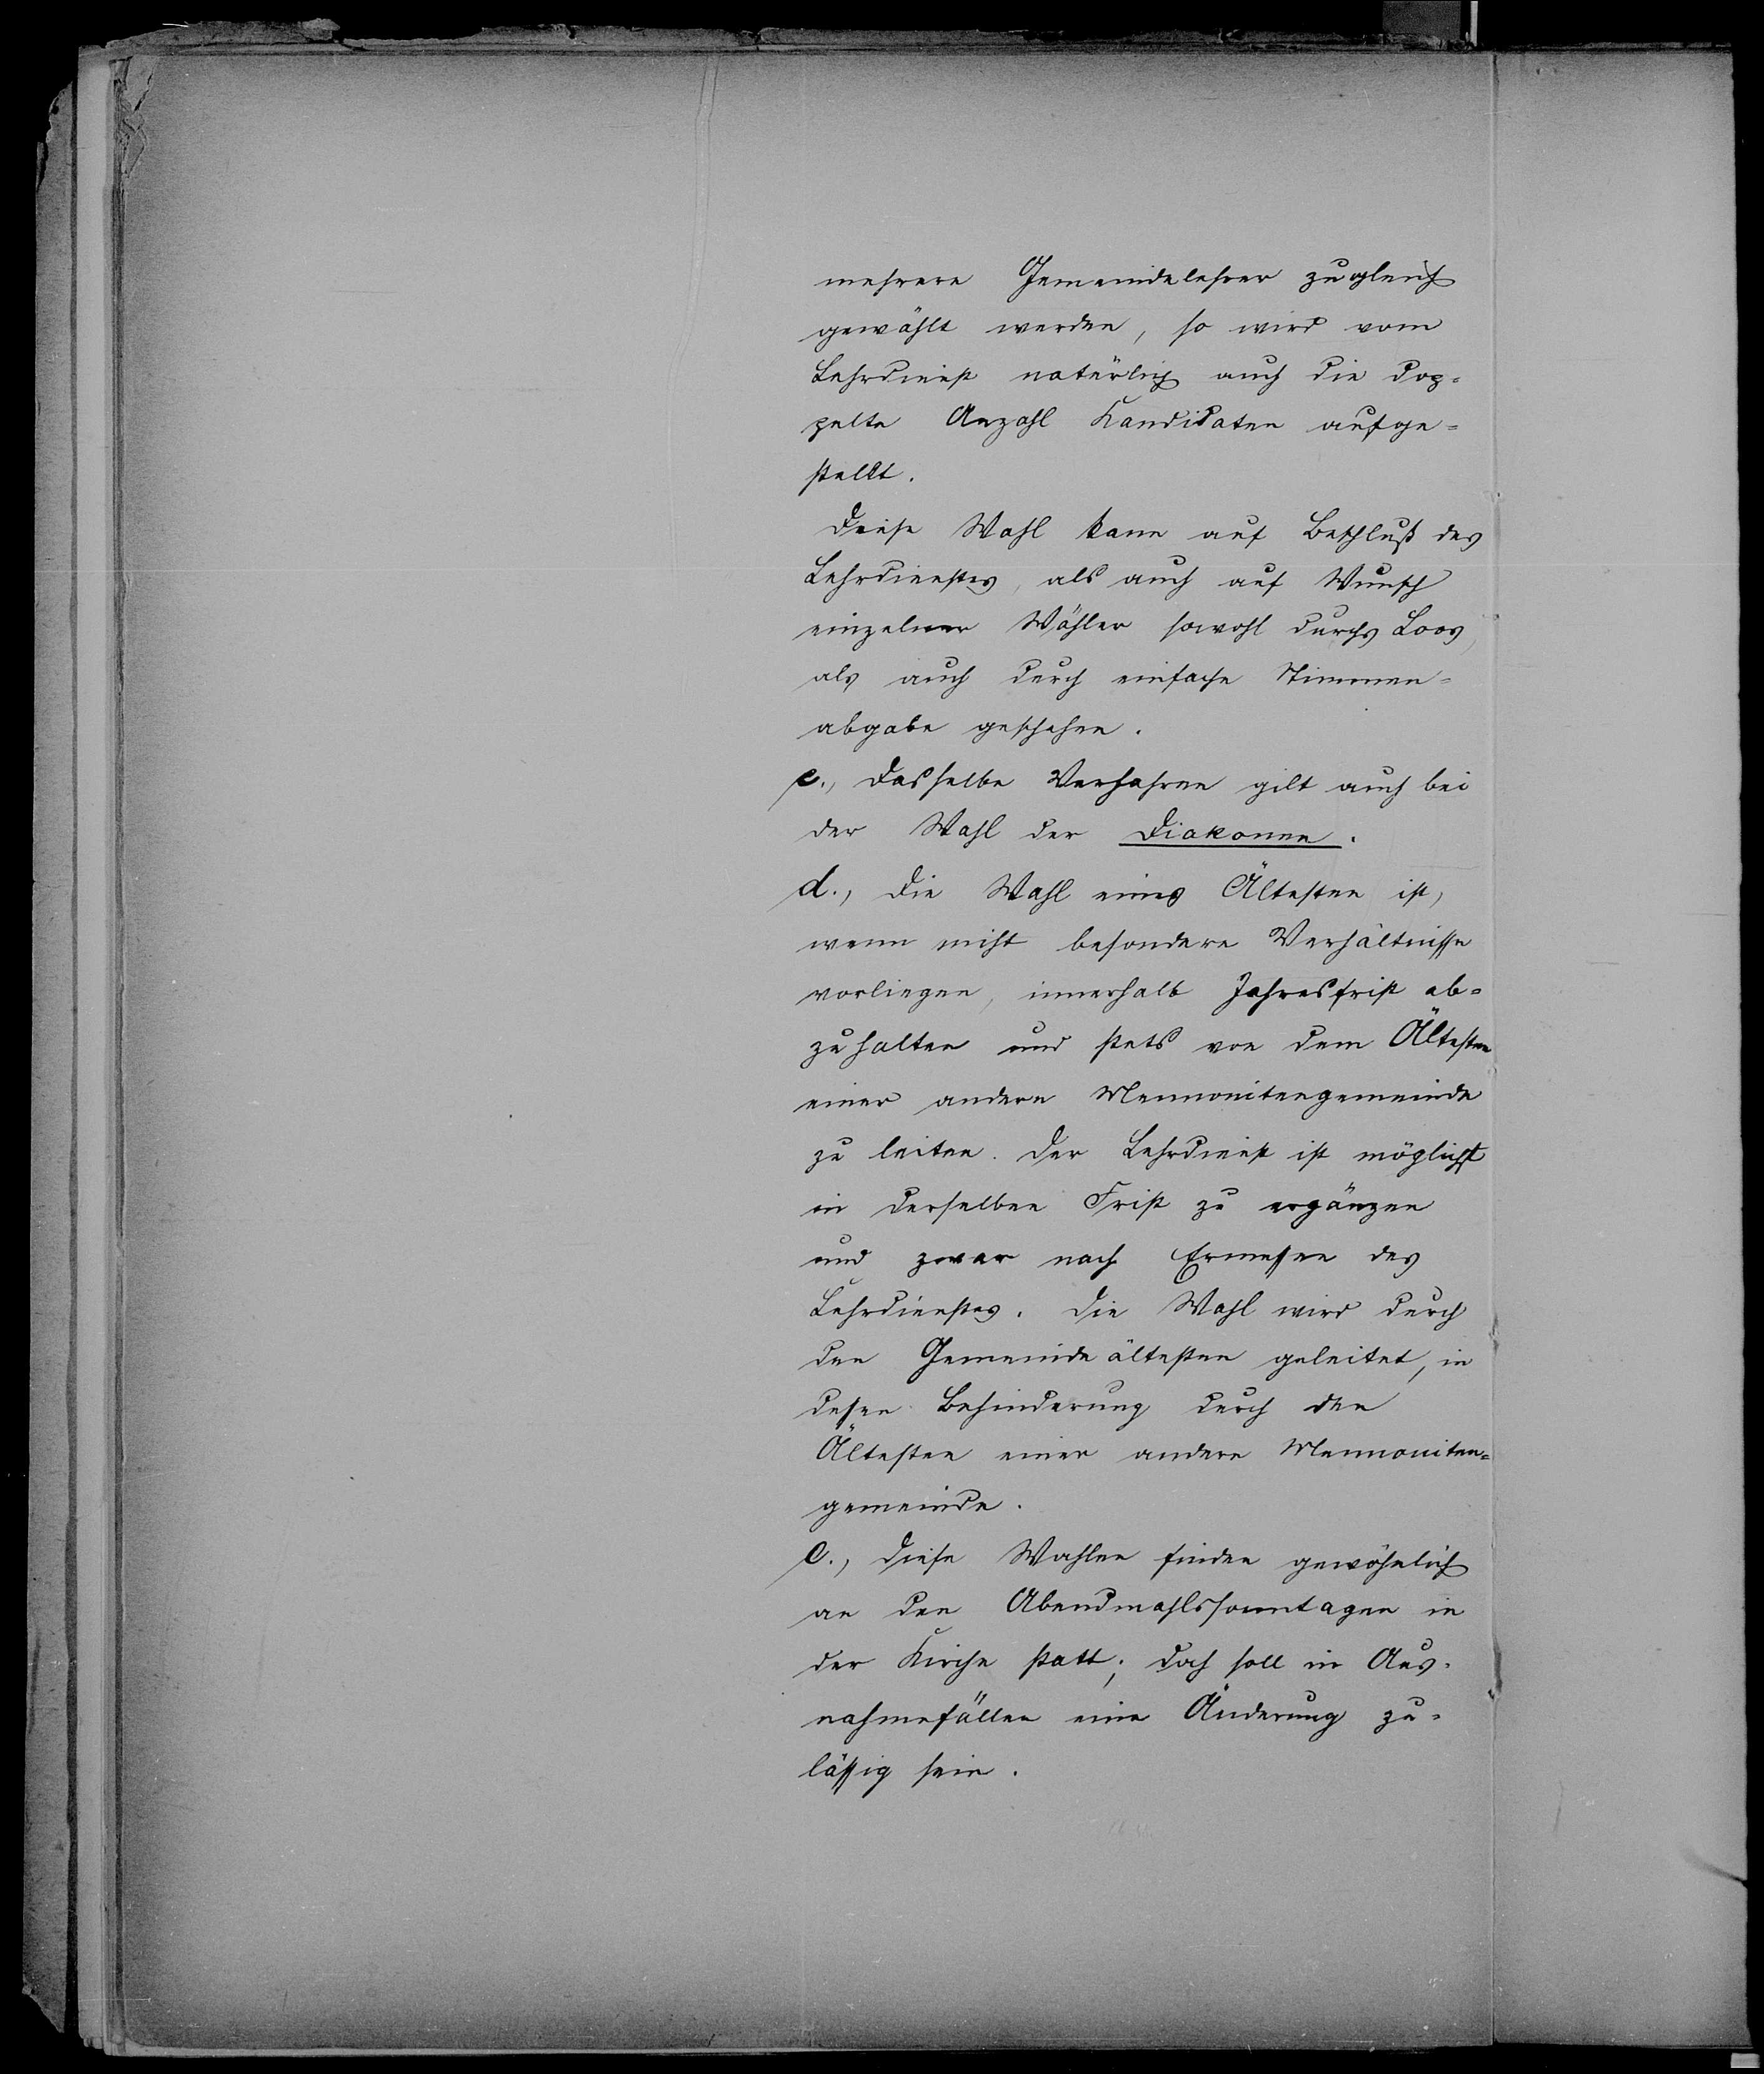 mehrere Gemeindelehrer zugleich
gewählt werden, so wird vom
Lehrdienst natürlich auch die dop=
pelte Anzahl Kandidaten aufge=
stellt.
Diese Wahl kann auf Beschluß des
Lehrdienstes, als auch auf Wunsch
einzelner Wähler sowohl durchs Loos,
als auch durch einfache Stimmen=
abgabe geschehen.
c., Dasselbe Verfahren gilt auch bei
der Wahl der Diakonen.
d., Die Wahl eines Ältesten ist,
wenn nicht besondere Verhältnisse
vorliegen, innerhalb Jahresfrist ab=
zuhalten und stets von dem Ältesten
einer andern Mennonitengemeinde
zu leiten. Der Lehrdienst ist möglichst
in derselben Frist zu ergänzen
und zwar nach Ermessen des
Lehrdienstes. Die Wahl wird durch
den Gemeindeältesten geleitet, in
dessen Behinderung durch den
Ältesten einer andern Mennoniten=
gemeinde.
e., Diese Wahlen finden gewöhnlich
an den Abendmahlssonntagen in
der Kirche statt; doch soll in Aus=
nahmefällen eine Änderung zu=
lässig sein.